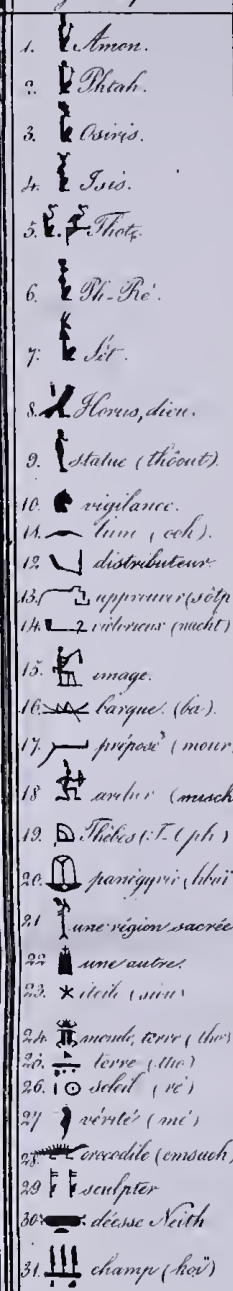 1. Amon.
2. Phtah.
3. Osiris.
4. Isis.
5. Thot.
6. Ph-Ré.
7. Sit.
8. Horus, dieu.
9. statue (thôout).
10. vigilance.
11. (ooh).
12. distributeur.
13. approuver (sôtp
14. victorieux (nacht)
15. image.
16. barque. (ba).
17. préposé (mour,
18. (musch
19. Thèbes (T-(ph)
20. panégyrie (hbaï
21. une région sacrée
22. une autre.
23. étoile (siou)
24. monde, terre (tho)
25. terre (tho)
26. soleil (ré)
27. vérité (mé)
28. crocodile (emsuch)
29. sculpter
30. déesse Neith
31. champ (hoï)